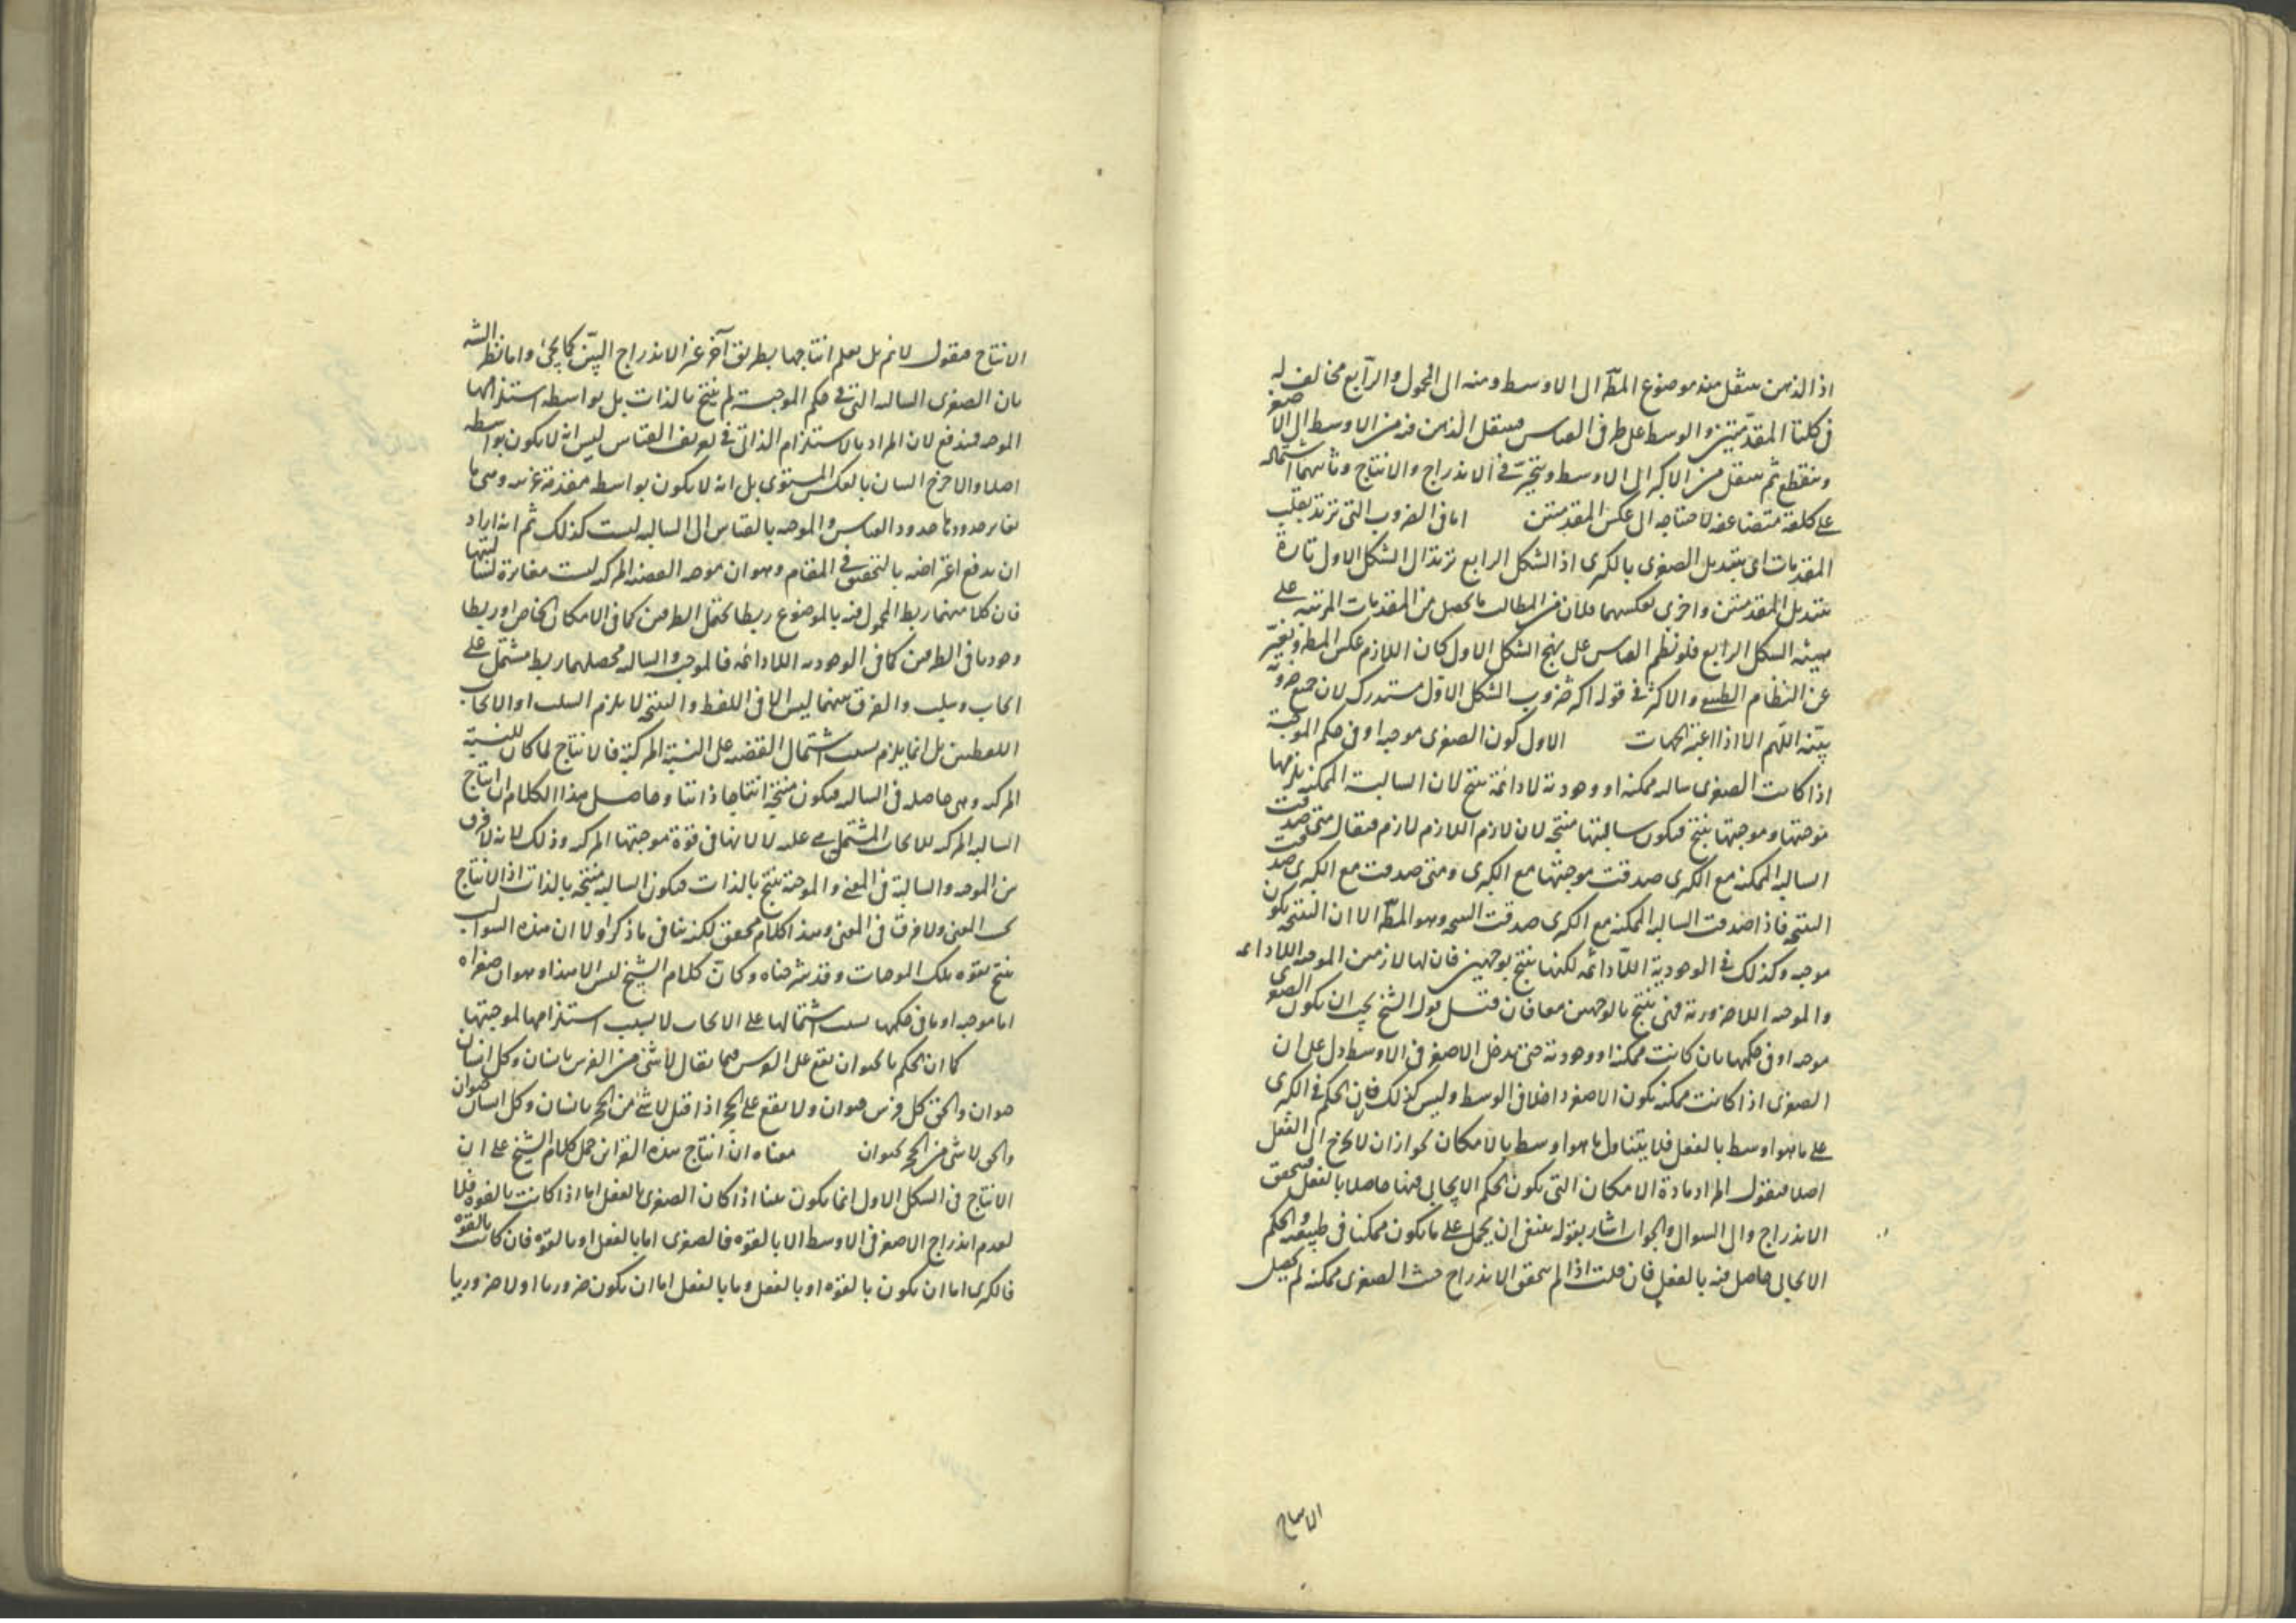 اذ الذهن ينتقل منه موضوع المط الى الاوسط ومنه الى المحمول والرابع مخالف له
فى كلتا المقدمتين والوسط على طرفى القياس فينتقل الذهن فيه من الاوسط الى الاصغر
وينقطع ثم ينتقل من الاكبر الى الاوسط ويتحير فى الاندراج والانتاج وثانيهما اشتماله
على كلفة متضاعفة لاحتياجه الى عكس المقدمتين اما فى الضروب التى ترتد بقلب
المقدمات اى بتبديل الصغرى بالكبرى اذ الشكل الرابع يرتد الى الشكل الاول تارة
بتبديل المقدمتين واخرى بعكسهما فلان من المطالب ما يحصل من المقدمات المرتبة على
هيئة الشكل الرابع فلو نظم القياس على نهج الشكل الاول كان اللازم عكس المط وتغير
عن النظام الطبيعى والاكثر فى قوله اكثر ضروب الشكل الاول مستدرك لان جميع ضروبه
بينة اللهم الا اذا اعتبر الجهات الاول كون الصغرى موجبة او فى حكم الموجبة
اذا كانت الصغرى سالبه ممكنه او وجودية لادائمة ينتج لان السالبة الممكنة يلزمها
موجبتها وموجبتها ينتج فيكون سالبتها منتجة لان لازم اللازم لازم فيقال متى صدقت
السالبه الممكنه مع الكبرى صدقت موجبتها مع الكبرى ومتى صدقت مع الكبرى صدقت
النتيجه فاذا صدقت السالبه الممكنه مع الكبرى صدقت النتيجه وهو المط الا ان النتيجه يكون
موجبه وكذلك فى الوجودية اللادائمه لكنها ينتج بوجهين فان لها لازمين الموجبه اللادائمه
والموجبه اللاضرورية فهى ينتج بالوجهين معا فان قيل قول الشيخ يجب ان يكون الصغرى
موجبه او فى حكمها بان كانت ممكنه او وجودية حتى يدخل الاصغر فى الاوسط دل على ان
الصغرى اذا كانت ممكنه يكون الاصغر داخلا فى الوسط وليس كذلك فان الحكم فى الكبرى
على ما هو اوسط بالفعل فلا يتناول ما هو اوسط بالامكان لجواز ان لا يخرج الى الفعل
اصلا فنقول المراد مادة الامكان التى يكون الحكم الايجابى فيها حاصلا بالفعل فيتحقق
الاندراج والى السوال والجواب اشار بقوله ينبغى ان يحمل على ما يكون ممكنا فى طبيعته والحكم
الايجابى حاصل فيه بالفعل فان قلت اذا لم يتحقق الاندراج حيث الصغرى ممكنه لم يحصل
الانتاج
الانتاج فنقول لانم بل يعلم انتاجها بطريق آخر غير الاندراج البين كما يجئ واما نظر الشه
بان الصغرى السالبه التى فى حكم الموجبة لم ينتج بالذات بل بواسطة استلزامها
الموجبه فيندفع لان المراد بالاستلزام الذاتى فى تعريف القياس ليس انه لا يكون بواسطه
اصلا والا خرج البيان بالعكس المستوى بل انه لا يكون بواسطه مقدمة غريبه وهى ما
يغاير حدودها حدود القياس والموجبه بالقياس الى السالبه ليست كذلك ثم انه اراد
ان يدفع اعتراضه بالتحقيق فى المقام وهو ان موجبه القضيه المركبه ليست مغايرة لسالبتها
فان كلا منهما ربط المحمول فيه بالموضوع ربطا يحتمل الطرفين كما فى الامكان الخاص او ربطا
وجوديا فى الطرفين كما فى الوجوديه اللادائمه فالموجبه والسالبه محصلهما ربط مشتمل على
ايجاب وسلب والفرق بينهما ليس الا فى اللفظ والنتيجه لا يلزم السلب او الايجاب
اللفظيين بل انما يلزم بسبب اشتمال القضيه على النسبة المركبة فالانتاج لما كان للنسبة
المركبه وهى حاصله فى السالبه فيكون منتجة انتاجا ذاتيا وحاصل هذا الكلام ان انتاج
السالبه المركبه للايجاب المشتمل هى عليه لا لانها فى قوة موجبتها المركبه وذلك لانه لا فرق
بين الموجبه والسالبة فى المعنى والموجبة ينتج بالذات فيكون السالبه منتجه بالذات اذ الانتاج
بحسب المعنى ولا فرق فى المعنى وهذا كلام محقق لكنه ينافى ما ذكر اولا ان هذه السوالب
ينتج بقوه تلك الموجبات وقد شرحناه وكان كلام الشيخ ليس الا هذا وهو ان صغراه
اما موجبه او ما فى حكمها بسبب اشتمالها على الايجاب لا بسبب استلزامها لموجبتها
كما ان الحكم بالحيوان يقع على الفرس فيما يقال لا شئ من الفرس بانسان وكل انسان
حيوان والحق كل فرس حيوان ولا يقع على الحجر اذا قيل لا شئ من الحجر بانسان وكل انسان حيوان
والحق لا شئ من الحجر بحيوان معناه ان انتاج هذه القراين حمل كلام الشيخ على ان
الانتاج فى الشكل الاول انما يكون بينا اذا كان الصغرى بالفعل اما اذا كانت بالقوه فلا
لعدم اندراج الاصغر فى الاوسط الا بالقوه فالصغرى اما بالفعل او بالقوه فان كانت بالقوه
فالكبرى اما ان يكون بالقوه او بالفعل وما بالفعل اما ان يكون ضروريا او لا ضروريا